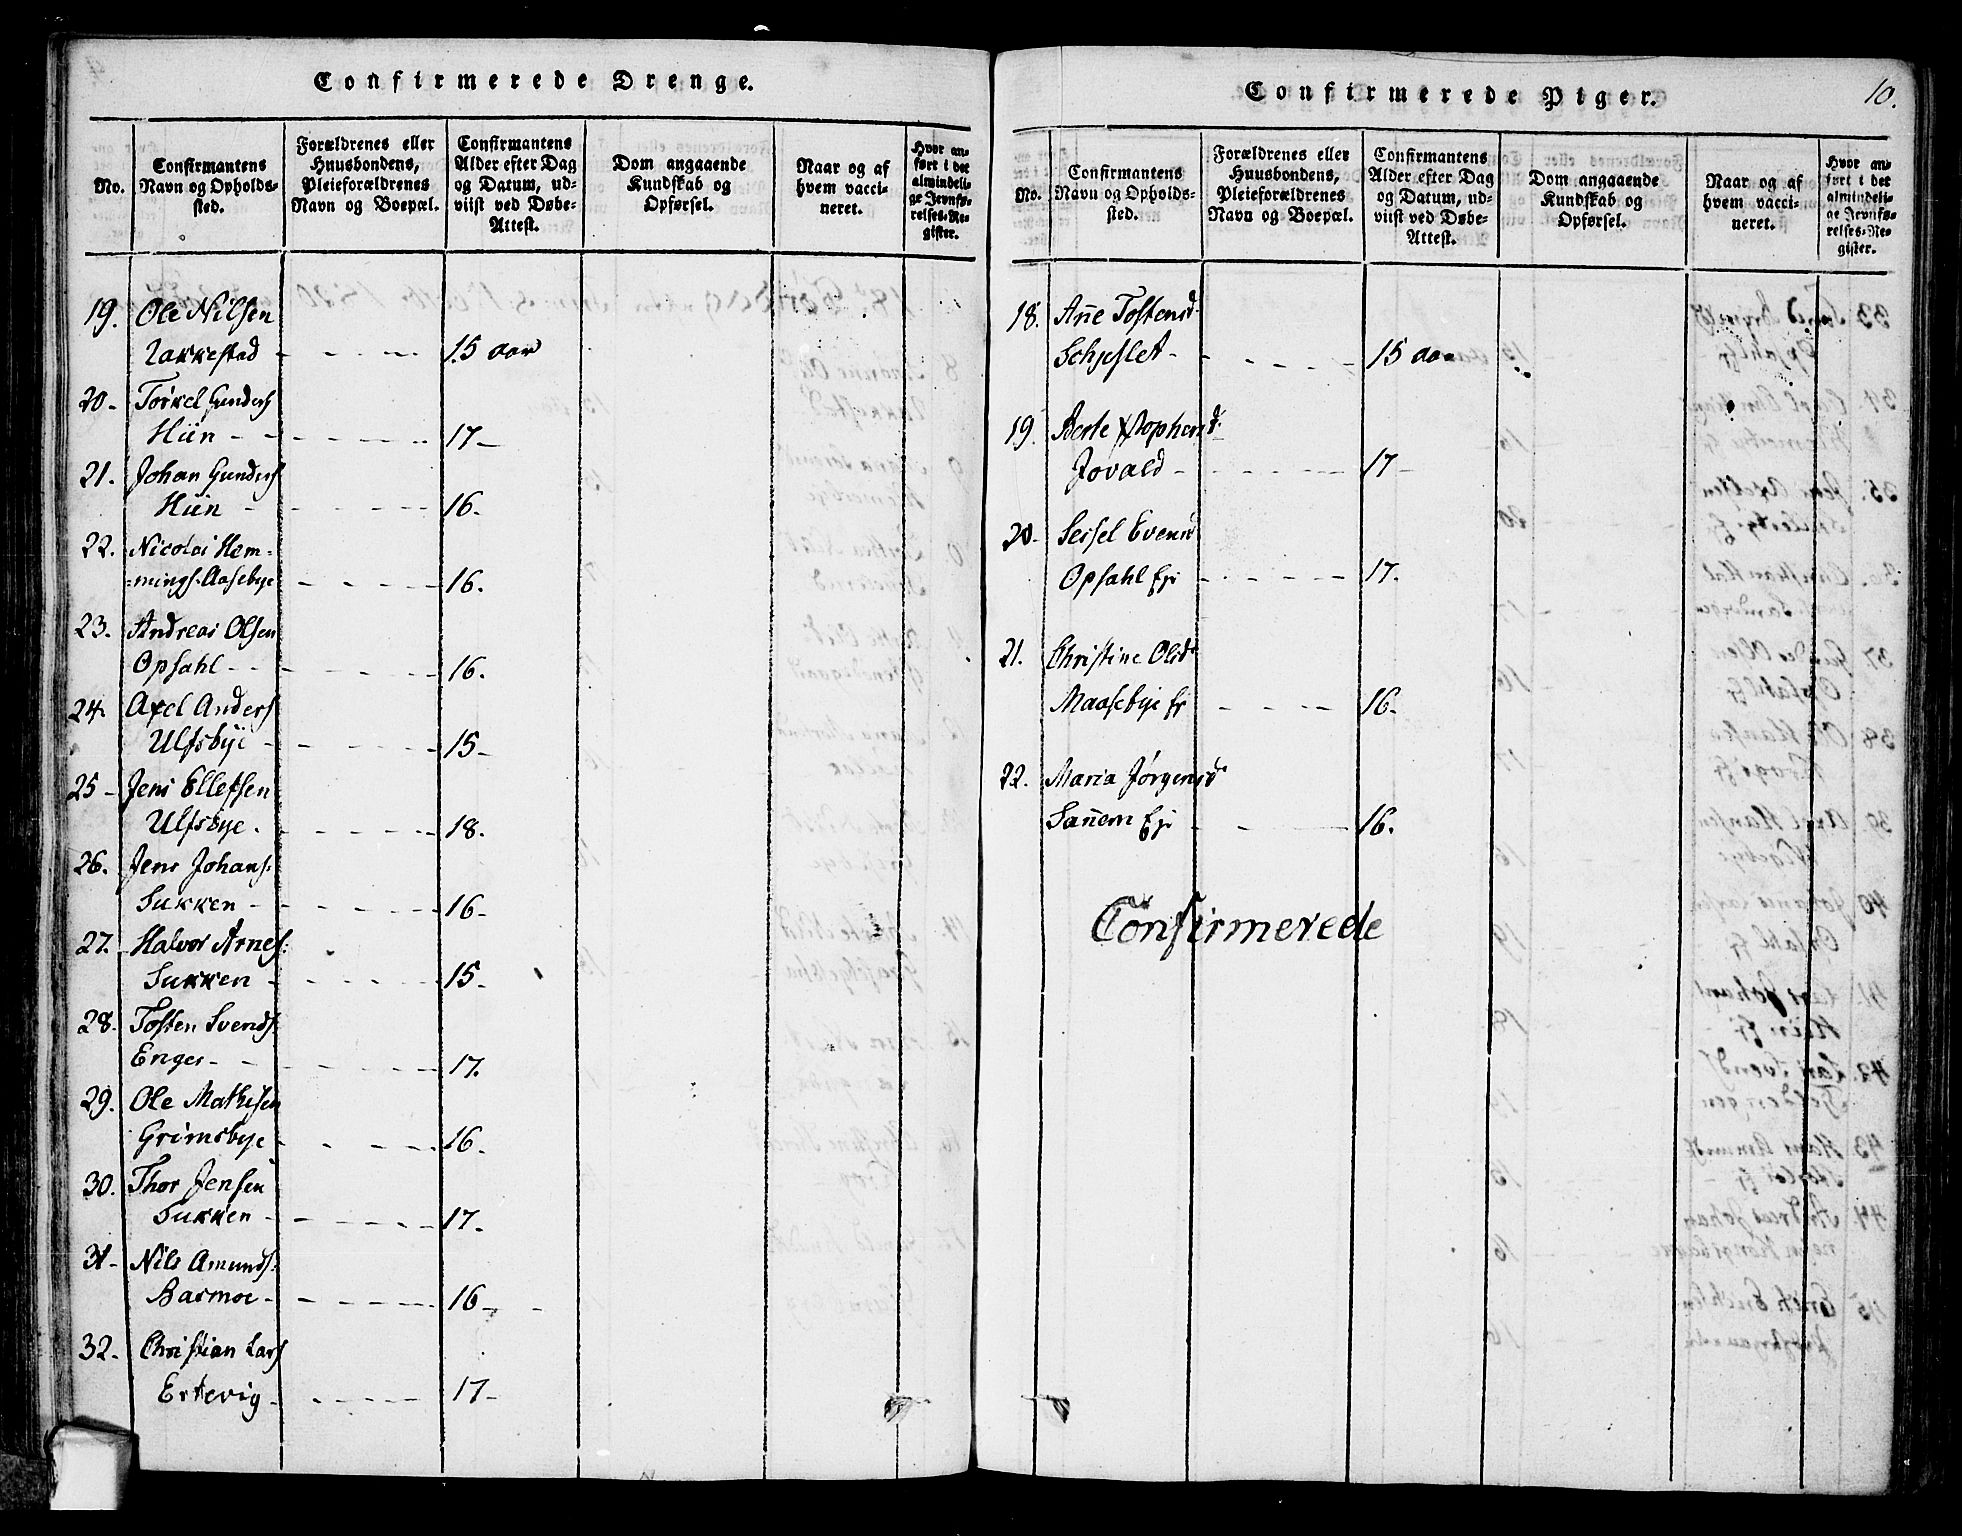 Confirmerede Drenge.
No.
Confirmantens
Navn og Opholds-
sted.
Forældrenes eller
Huusbondens,
Pleieforældrenes
Navn og Boepæl.
Confirmantens
Alder efter Dag
og Datum, ud-
viist ved Døbe-
Attest.
Dom angaaende
Kundskab og
Opførsel.
Naar og af
hvem vacci-
neret.
Hvor an-
ført i det
almindeli-
ge Jevnfø-
relses-Re-
gister.
19. Ole Nilsen
Rakkestad - - - - 15 aar
20- Torkel Gunders
Hiin - - - - - 17-
21. Johan Gunders
Hiin - - - - - 16.
22. Nicolai Hem-
=mings. Aasebye - - - - 16.
23. Andreas Olsen
Opsahl - - - - - 16.
24. Axel Anders
Ulfsbye - - - - - 15-
25- Jens Ellefsen
Ulfsbye. - - - - 18.
26. Jens Johans:
Sukken - - - - - 16-
27. Halvor Arnes:
Sukken - - - - 15-
28. Tosten Svends
Enger - - - - - 17.
29. Ole Mathisen
Grimsbye - - - - 16-
30. Thor Jensen
Sukken - - - - - 17.
31- Nils Amunds:
Basmoe - - - - - 16-
32- Christian Lars
Ertevig - - - - - 17-
Confirmerede Piger.
10.
No.
Confirmantens
Navn og Opholds-
sted.
Forældrenes eller
Huusbondens,
Pleieforældrenes
Navn og Boepæl.
Confirmantens
Alder efter Dag
og Datum, ud-
viist ved Døbe-
Attest.
Dom angaaende
Kundskab og
Opførsel.
Naar og af
hvem vacci-
neret.
Hvor an-
ført i det
almindeli-
ge Jevnfø-
relses-Re-
gister.
18. Añe Tostensd.
- - - - - 15 aar
19. Berte
- - - - - 17-
20- Sessel Evensd
Opsahl Ej - - - - 17.
21. Christine Olsd
Maasebye Ej - - - - 16-
22. Maria Jörgensd
Sañem Ej - - - - 16.
Confirmerede